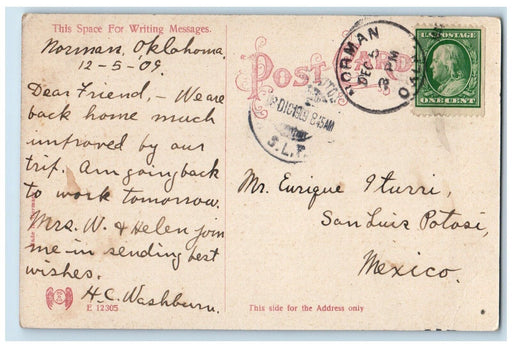 This Space For Writing Messages.
Norman, Oklahoma
12-5-09.
Dear Friend,- We are
back home much
improved by our
trip. Am going back
to work tomorrow.
Mrs. W. & Helen join
me in sending best
wishes.
H.C. Washburn.
E 12305
POST CARD
NORMAN
DEC 5
PM
OKLA
DIC 1909 8 45 AM
S.L.P.
U.S. POSTAGE
ONE CENT
Mr. Enrique Iturri,
San Luis Potosi,
Mexico.
This side for the Address only